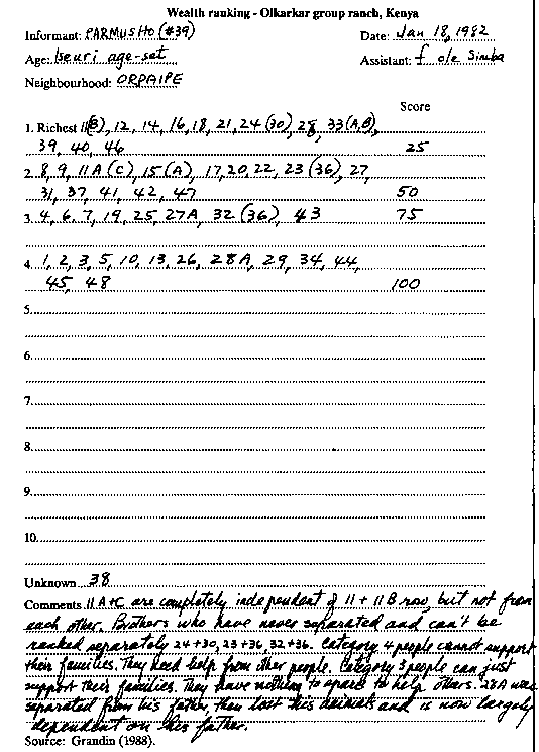 Wealth ranking - Olkarkar group ranch, Kenya
Informant: PARMUSHO (#39) Date: Jan 18, 1982
Age: Iseuri age-set Assistant: f ole Simba
Neighbourhood: ORPAIPE
Score
1. Richest 11(B), 12, 14, 16, 18, 21, 24 (30), 28, 33 (A,B),
39, 40, 46 25
2. 8, 9, 11A (C), 15 (A), 17, 20, 22, 23 (36), 27,
31, 37, 41, 42, 47 50
3. 4, 6, 7, 19, 25, 27A, 32 (36), 43 75
4. 1, 2, 3, 5, 10, 13, 26, 28A, 29, 34, 44,
45, 48 100
5.
6.
7.
8.
9.
10.
Unknown 38
Comments 11 A+C are completely independent of 11 + 11B now, but not from
each other. Brothers who have never separated and can't be
ranked separately 24+30, 23+36, 32+36. Category 4 people cannot support
their families. They need help from other people. Category 3 people can just
support their families. They have nothing to spare to help others. 28A was
separated from his father, then lost his animals and is now largely
dependent on his father.
Source: Grandin (1988).